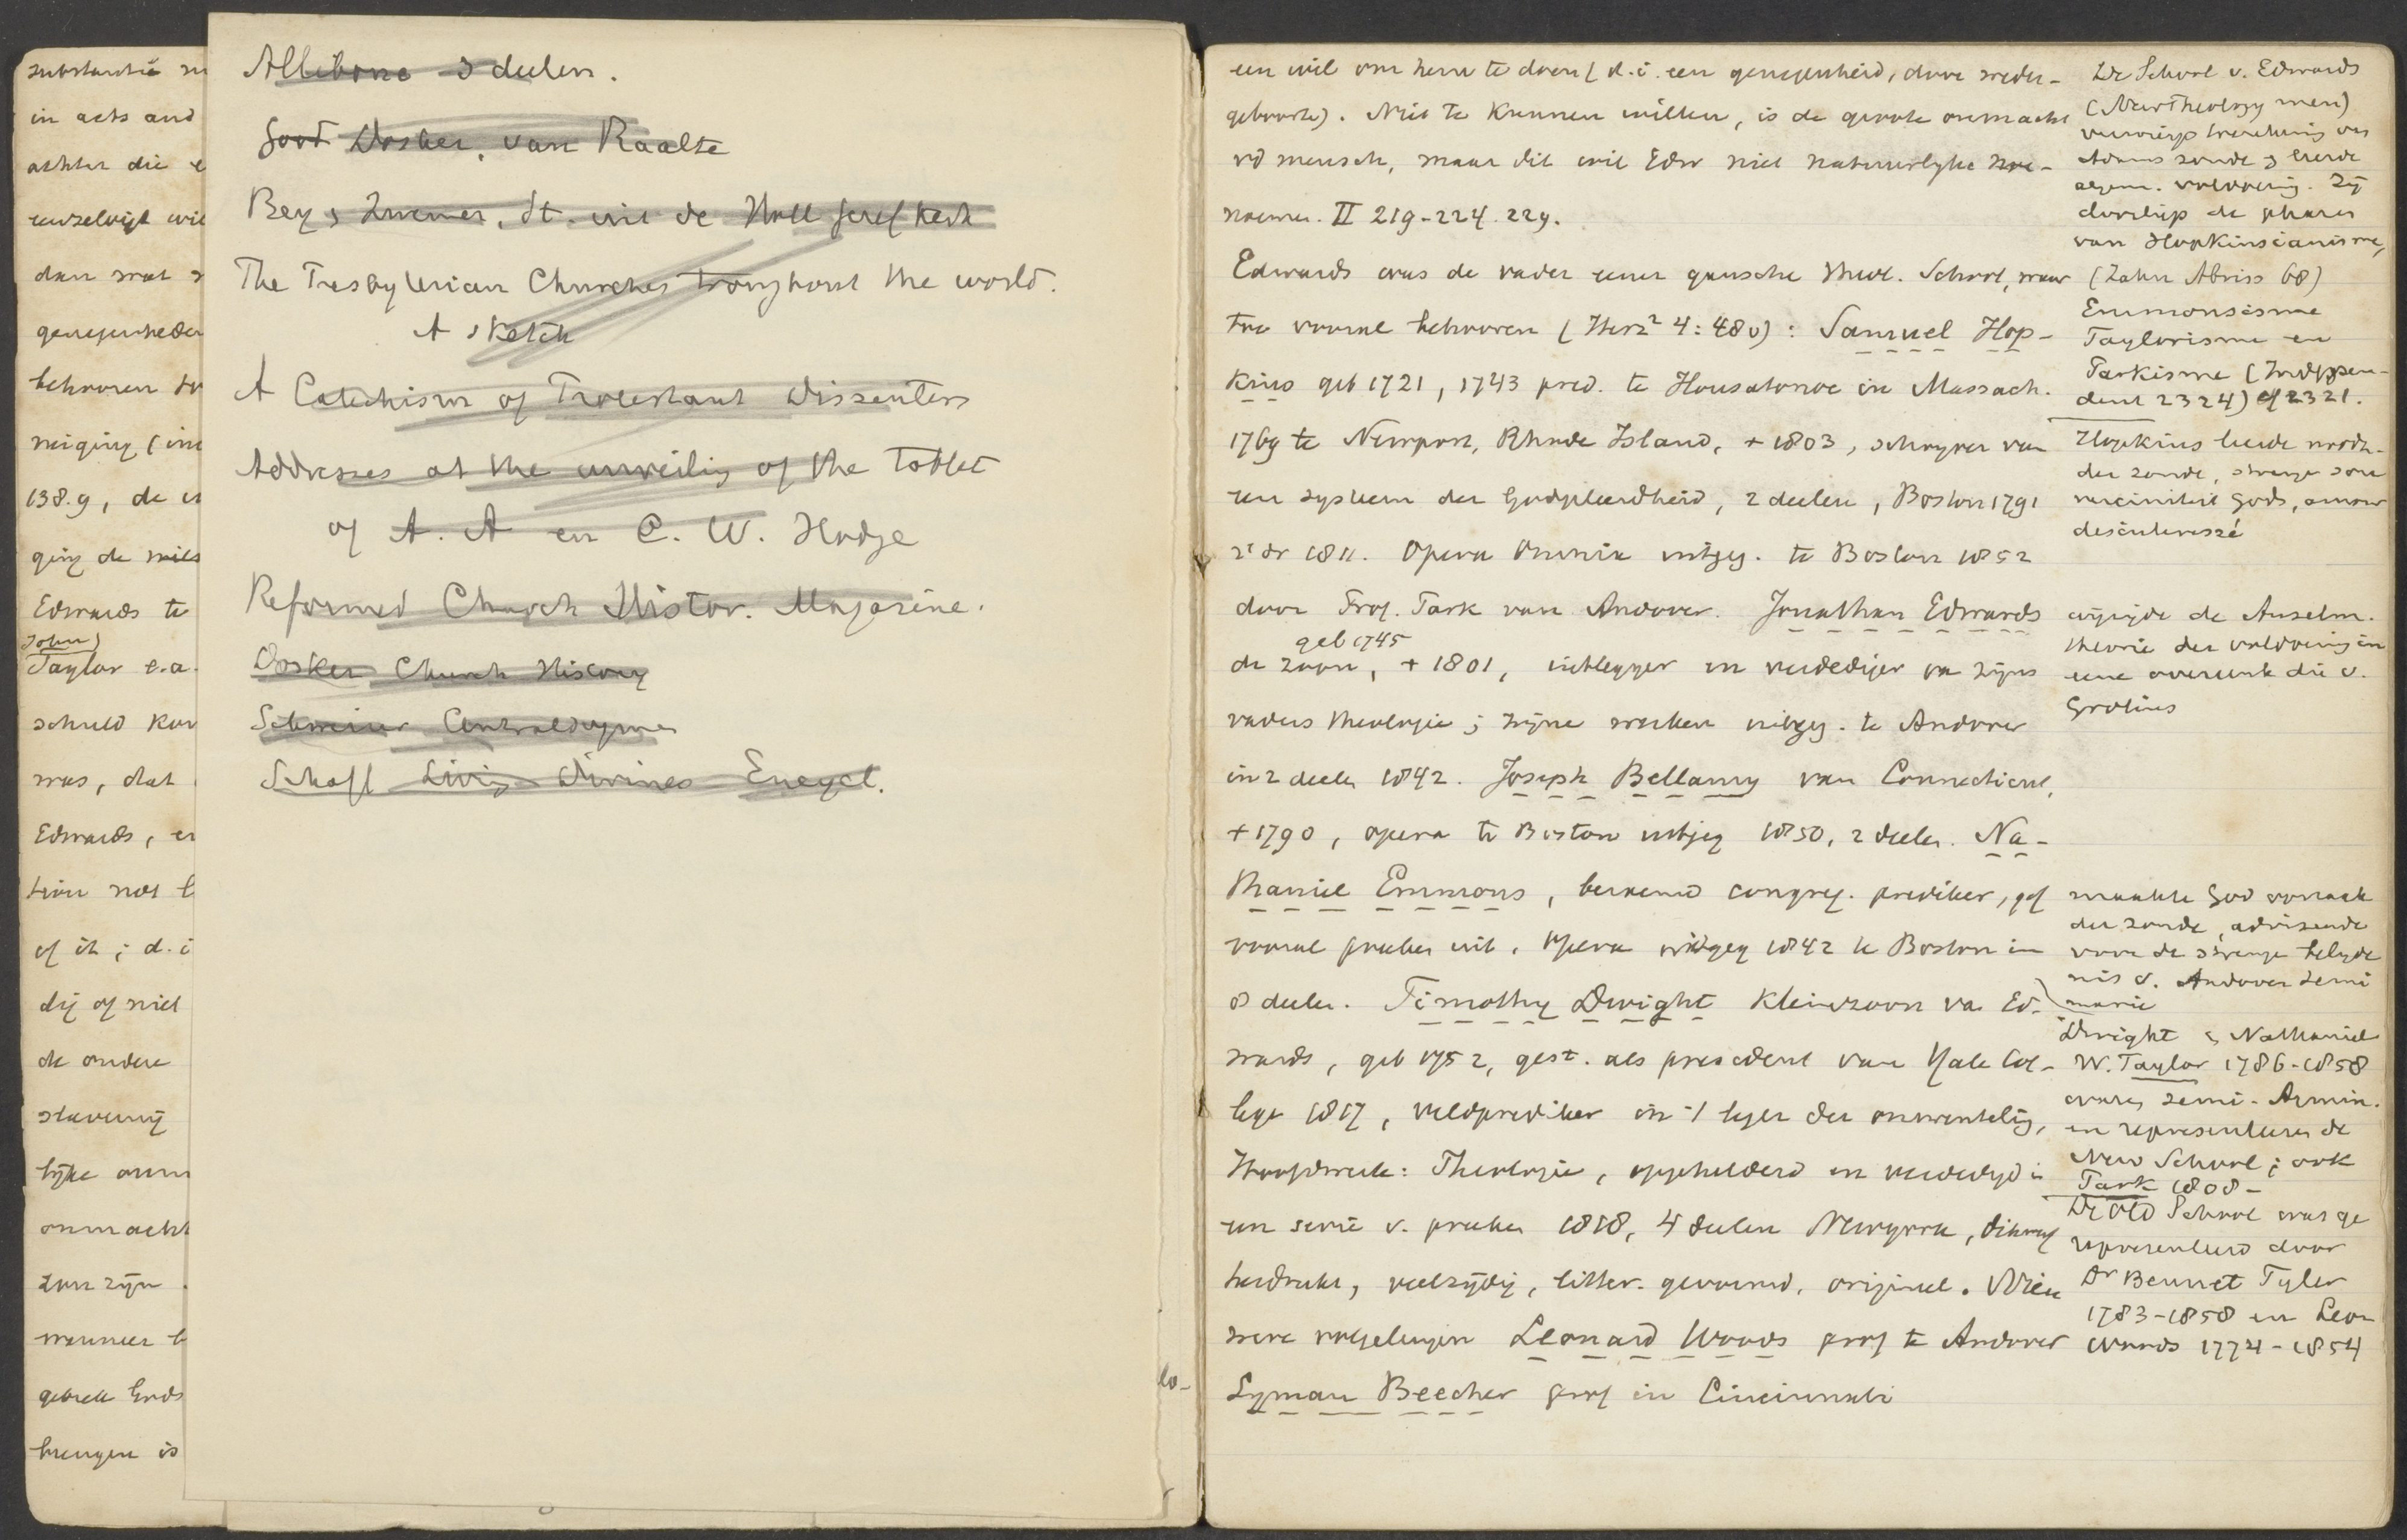 substantie
in acts and
achter die
dan wat
genegenheden
behooren
neiging
138.9, de
ging de
Edwards te
John)
Taylor e.a.
schuld
was, dat
Edwards, en
tion not
of it; d.i
dig of niet
de andere
slavernij
lijke onm
onmacht
zon zijn
wanneer
gebrek Gods
brengen is
Allibone 3 deelen.
Good Dosker, van Raalte
Bey, Zwemer, St. uit de Holl Geref kerk
The Presbyterian Churches troughout the world.
A sketch
A Catechism of Protestant Dissenters
Addresses at the unveiling of the Tablet
of A. A en C. W. Hodge
Reformed Church Histor. Magazine.
Dosker Church History
Schweizer Centraldogmen
Schaff Living Divines Encycl.
lo-
een wil om hem te doen (d.i. een genegenheid, door weder-
geboorte). Niet te kunnen willen, is de groote onmacht
vd mensch, maar dit wil Edw niet natuurlyke
noemen. II 219-224. 229.
Edwards was de vader eener gansche theol. School, waar
toe vooral behooren (Herz² 4:480): Samuel Hop-
kins geb 1721, 1743 pred. te Housatonoc in Massach.
1769 te Newport, Rhode Island, + 1803, schryver van
een systeem der Godgeleerdheid, 2 deelen, Boston 1791
2e dr 1811. Opera Omnia uitgeg. te Boston 1852
door Prof. Park van Andover. Jonathan Edwards
geb 1745
de zoon, + 1801, uitlegger en verdediger van zijns
vaders theologie; zijne werken uitgeg. te Andover
in 2 deelen 1842. Joseph Bellamy van Connecticut,
+ 1790, opera te Boston uitgeg 1850, 2 deelen. Na-
thaniel Emmons, beroemd congreg. prediker, gaf
vooral preeken uit, Opera uitgeg 1842 te Boston in
8 deelen. Timothy Dwight kleinzoon van Ed-
wards, geb 1752, gest. als president van Yale Col-
lege 1817, veldprediker in 't leger der omwenteling,
Hoofdwerk: Theologie, opgehelderd en verdedigd in
een serie v. preeken 1818, 4 deelen Newyork, dikwijls
herdrukt, veelzijdig, litter. gevormd, origineel. Nieu
were volgelingen Leonard Woods prof te Andover
Lyman Beecher prof in Cincinnati
De School v. Edwards
(New Theology men)
verwierp toerekening van
Adams zonde & leerde
algem. voldoening. Zij
doorliep de phasen
van Hopkinsianisme,
(Zahn Abriss 68)
Emmonsisme
Taylorisme en
Parkisme (Indepen-
dent 2324) cf 2321.
Hopkins leerde noodz.
der zonde, strenge sou
vereiniteit Gods, amour
desinteressé
wijzigde de Anselm.
theorie der voldoening in
eene overeenk die v.
Grotius
maakte God oorzaak
der zonde, adviseerde
voor de strenge belyde
nis v. Andover Semi
narie
Dwight & Nathaniel
W. Taylor 1786-1858
waren semi-Armin.
en representeeren de
New School; ook
Park 1808-
De Old School was ge
representeerd door
Dr Bennet Tyler
1783-1858 en Leon
Woods 1774-1854